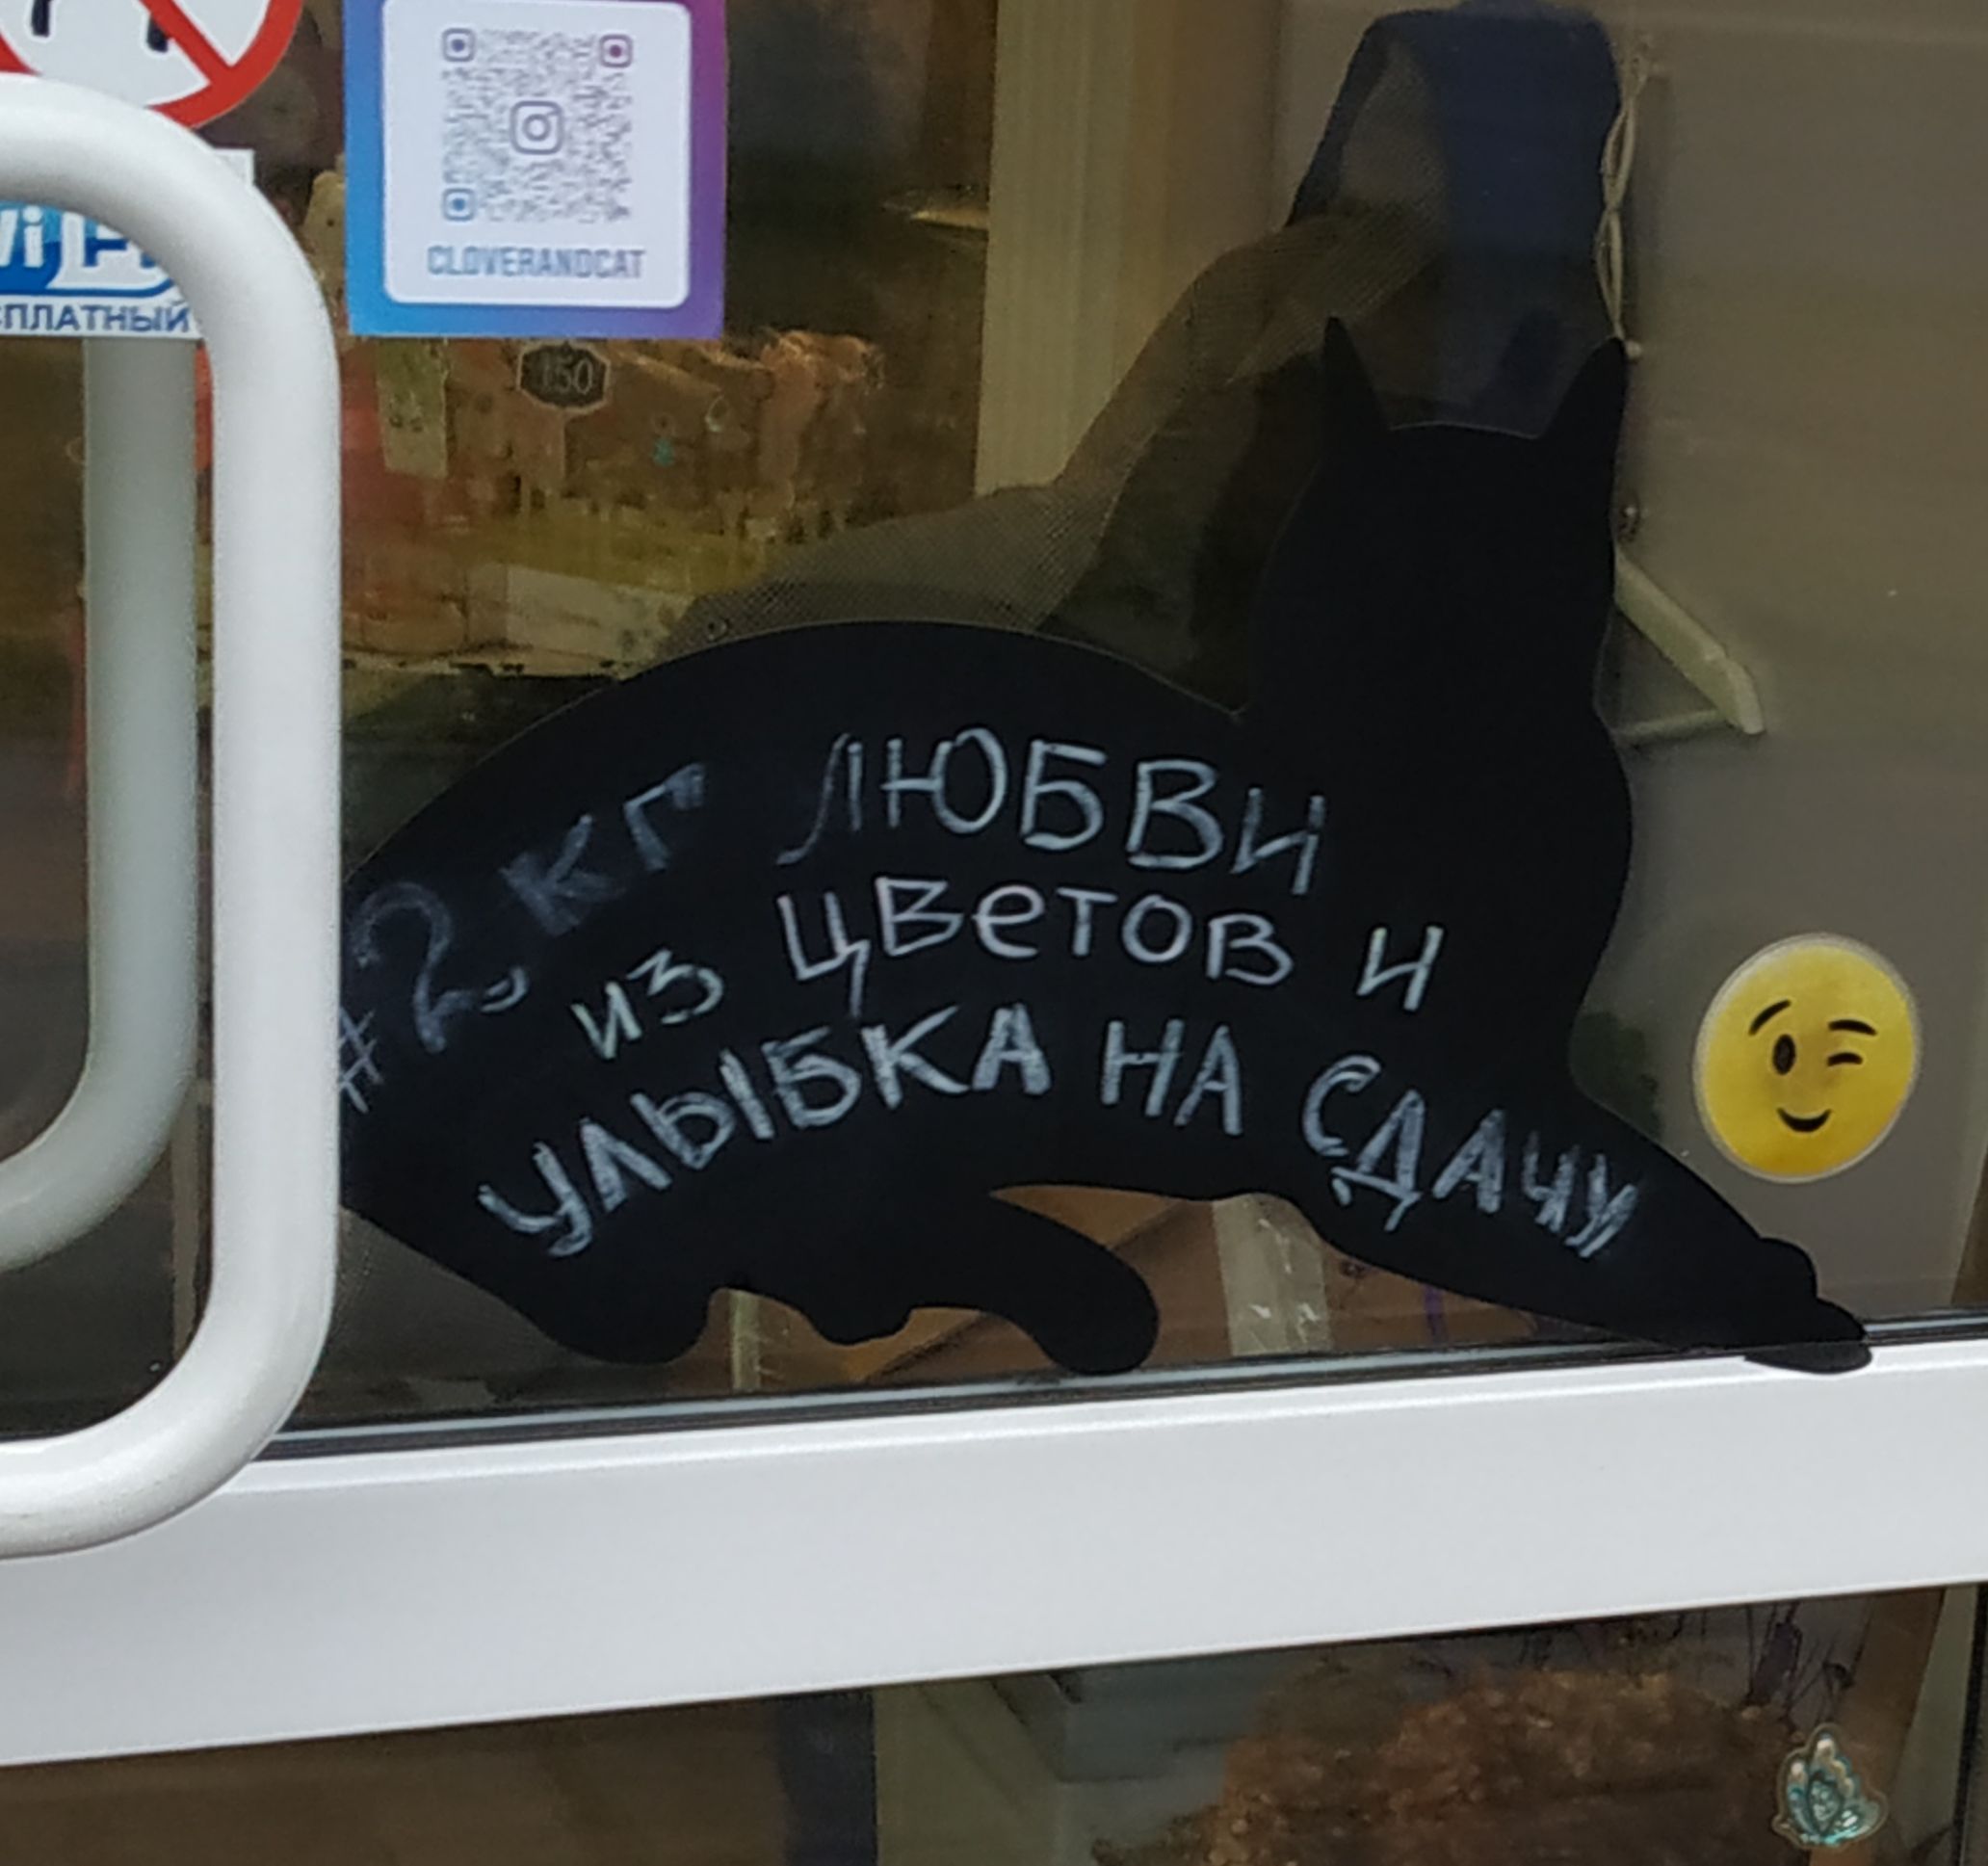 CLOVERANDCAT
Wi Fi
СПЛАТНЫЙ
150
#2 кг ЛЮБВИ
из ЦВеТОВ И
УЛЫБКА НА СДАЧУ